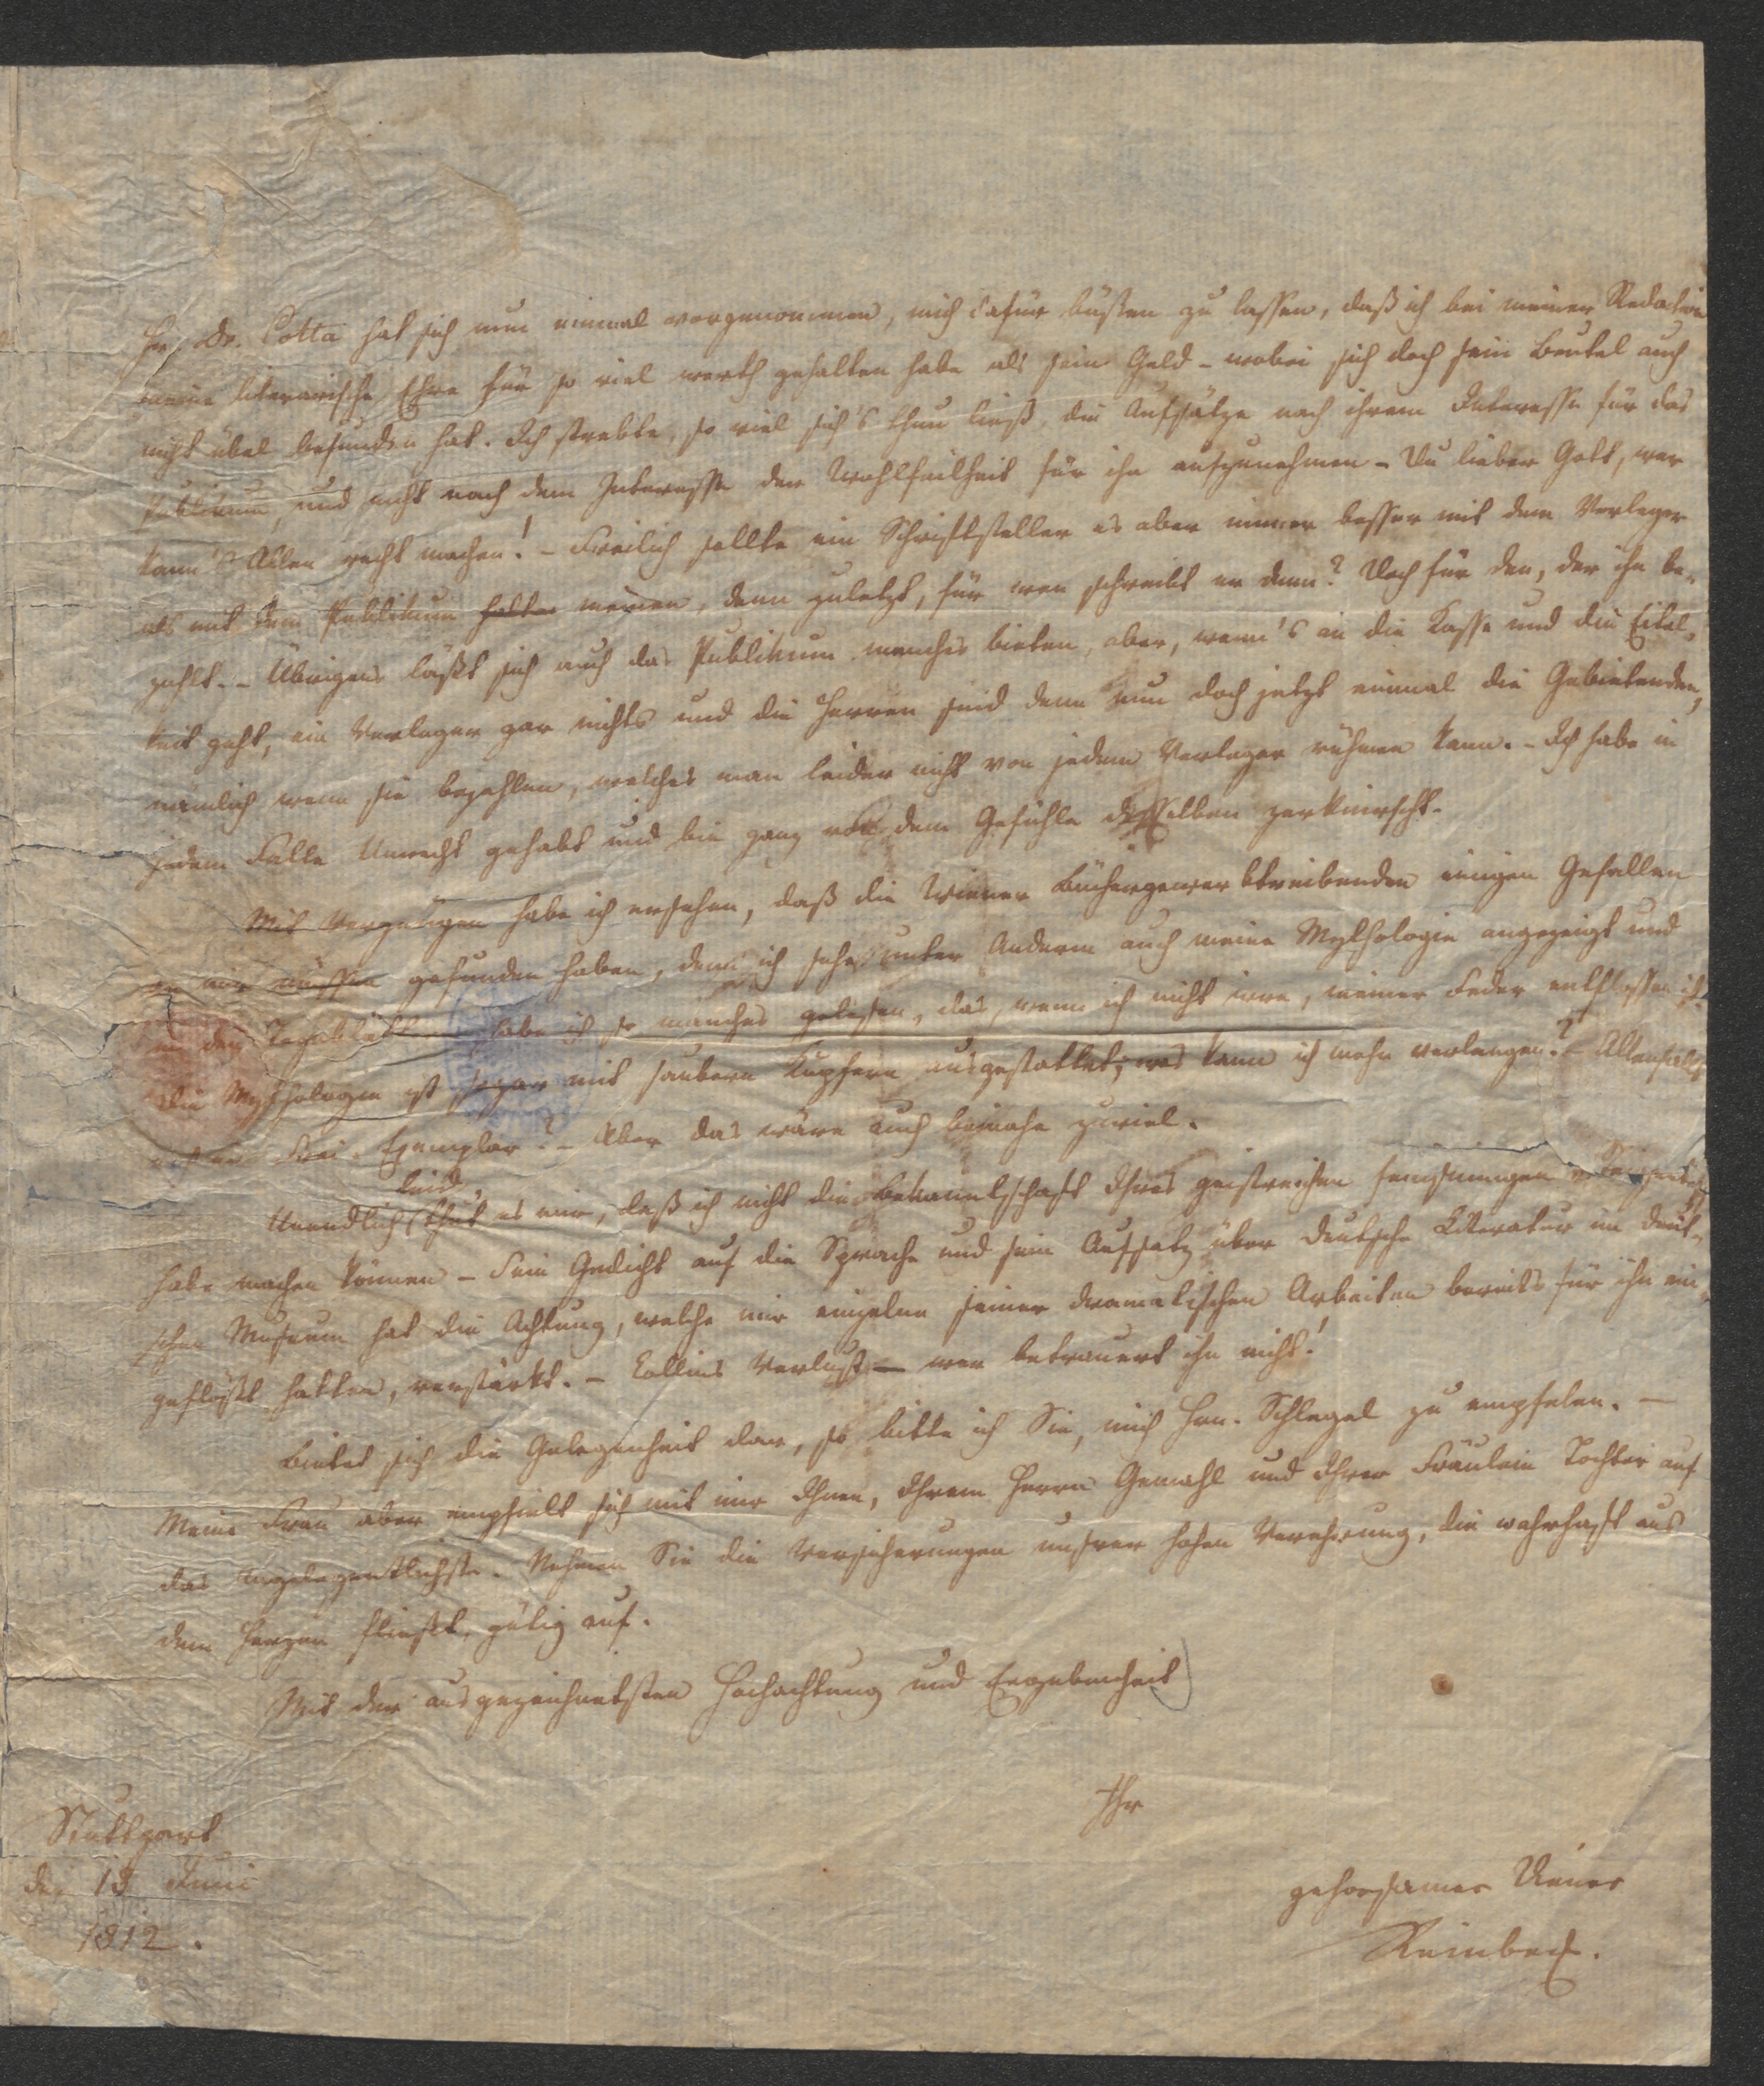 Hr. Dr. Cotta hat sich nun einmal vorgenommen, mich dafür büßen zu lassen, daß ich bei meiner Redaktion
meine literarische Ehre für so viel werth gehalten habe als sein Geld – wobei sich doch sein Beutel auch
nicht übel befunden hat. Ich strebte, so viel sich's thun ließ, die Aufsätze nach ihrem Interesse für das
Publikum, und nicht nach dem Interesse der Wohlfeilheit für ihn aufzunehmen – Du lieber Gott, wer
kann's Allen recht machen! – Freilich sollte ein Schriftsteller es aber immer besser mit dem Verleger
als mit dem Publikum halten meinen, denn zuletzt, für wen schreibt er denn? Doch für den, der ihn be-
zahlt. – Übrigens läßt sich auch das Publikum manches bieten, aber, wenn's an die Kasse und die Eitel-
keit geht, ein Verleger gar nichts und die Herren sind denn nun doch jetzt einmal die Gebietenden,
nämlich wenn sie bezahlen, welches man leider nicht von jedem Verleger rühmen kann. – Ich habe in
jedem Falle Unrecht gehabt und bin ganz von dem Gefühle desselben zerknirscht.
Mit Vergnügen habe ich ersehen, daß die Wiener Büchergewerbtreibenden einigen Gefallen
an mir müssen gefunden haben, denn ich sehe unter Anderm auch meine Mythologie angezeigt und
in den habe ich so manches gelesen, das, wenn ich nicht irre, meiner Feder entflossen ist.
Die Mythologie ist sogar mit saubern Kupfern ausgestattet; was kann ich mehr verlangen? – Allenfalls
ein Frei-Exemplar? – Aber das wäre auch beinahe zuviel.
leid
Unendlich thut es mir, daß ich nicht die Bekanntschaft Ihres geistreichen
habe machen können – Sein Gedicht auf die Sprache und sein Aufsatz über deutsche Literatur im deut-
schen Museum hat die Achtung, welche mir einzelne seiner dramatischen Arbeiten bereits für ihn ein-
geflößt hatten, verstärkt. – Collins Verlust – wer betrauert ihn nicht!
Bietet sich die Gelegenheit dar, so bitte ich Sie, mich Hrn. Schlegel zu empfelen. –
Meine Frau aber empfielt sich mit mir Ihnen, Ihrem Herrn Gemahl und Ihrer Fräulein Tochter auf
das Angelegentlichste. Nehmen Sie die Versicherungen unsrer hohen Verehrung, die wahrhaft aus
dem Herzen fließt, gütig auf.
Mit der ausgezeichnetsten Hochachtung und Ergebenheit
Ihr
Stuttgart
den 13 Juni
1812.
gehorsamer Diener
Reinbeck.